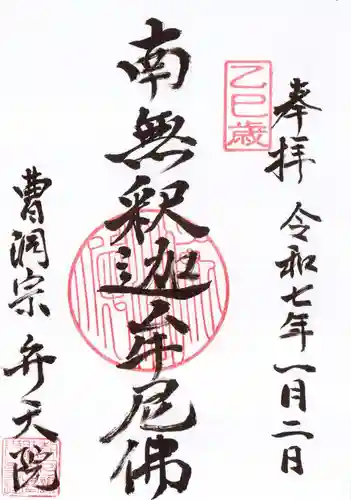 奉拝
令和七年一月二日
乙巳歳
南無釈迦牟尼佛
曹洞宗
弁天院